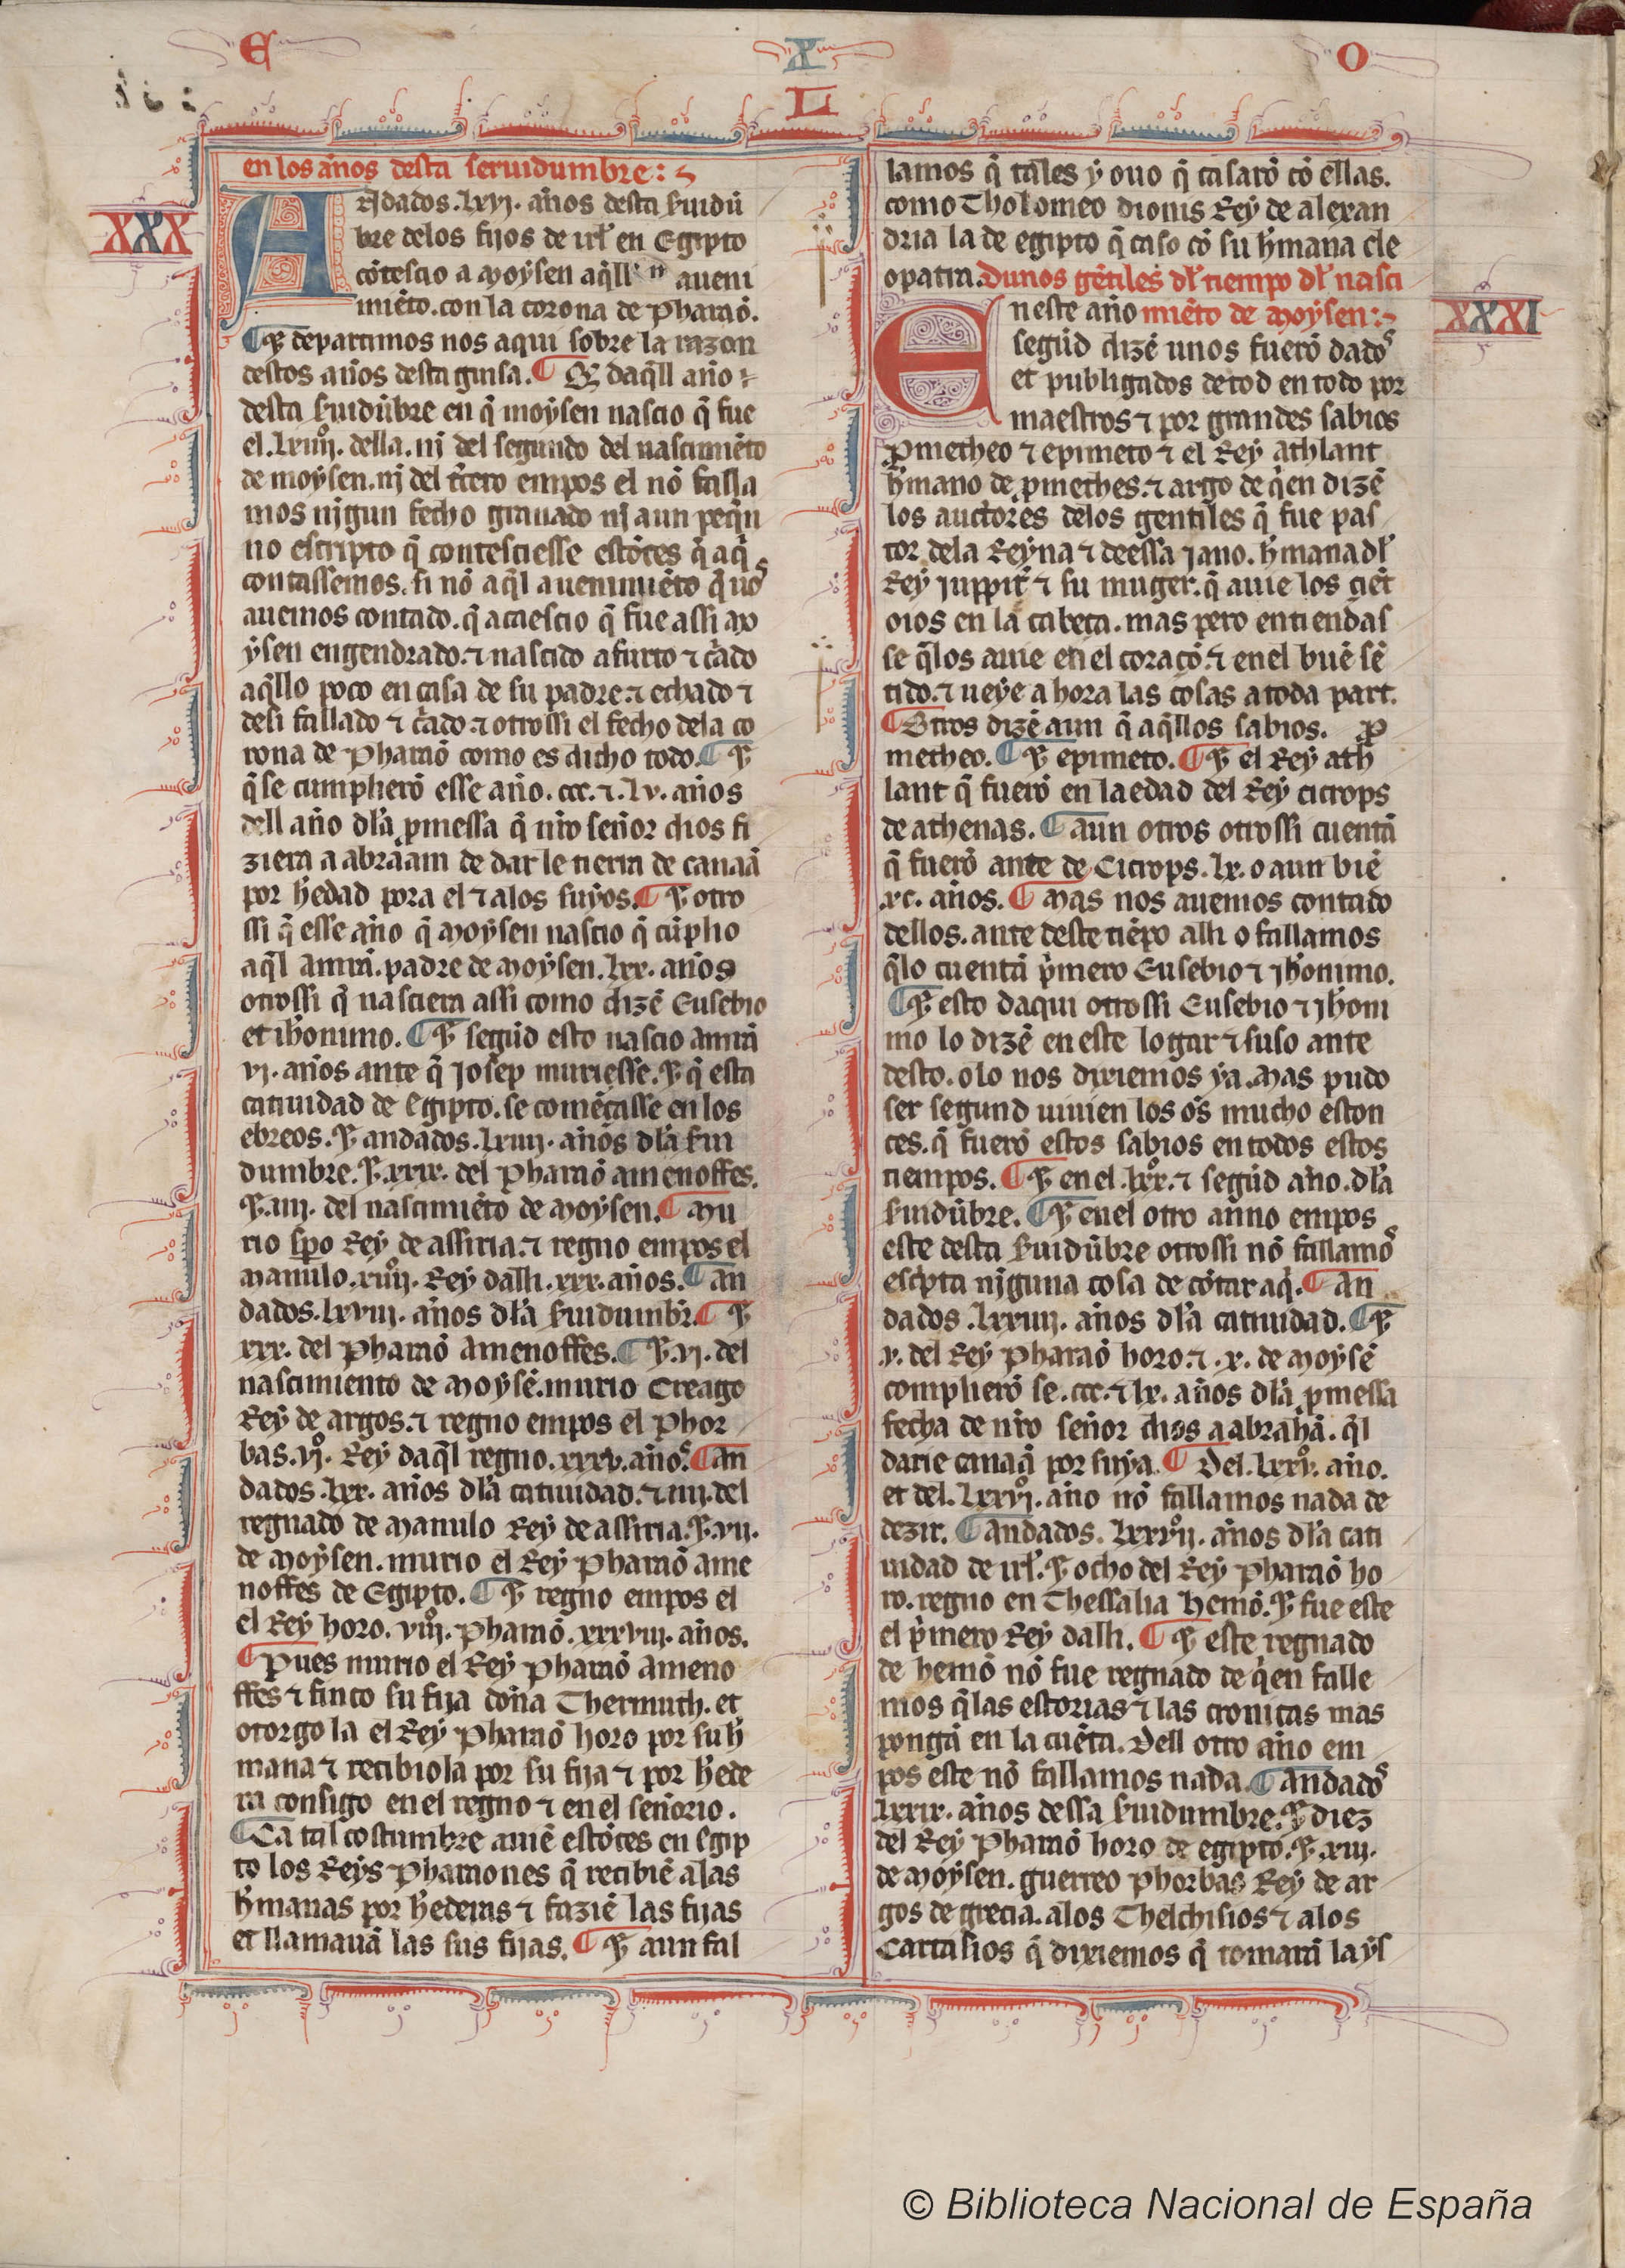 E X O
L
en los años desta seruidumbre:
XXX
ANdados .lxvj. años desta ſuidũ
bre delos fijos de irl̃ en Egipto
cõteſcio a moyſen aq̃ll aueni
miẽto. con la corona de Pharaõ.
¶ ⁊ departimos nos aqui ſobre la razon
deſtos años deſta guiſa. ¶ Et daq̃ll año
deſta ſuidũbre en q̃ moyſen naſcio q̃ fue
el .lxiiijº. della. nj del ſegundo del naſcimiẽto
de moyſen. nj del t̃cero empos el nõ falla
mos njgun fecho granado nj aun peq̃n
no eſcripto q̃ conteſcieſſe eſtõces q̃ aq̃
contaſſemos. ſi nõ aq̃l auenimiẽto q̃ uos
auemos contado. q̃ acaeſcio q̃ fue aſſi mo
yſen engendrado. ⁊ naſcido a furto ⁊ c̃ado
aq̃llo poco en caſa de ſu padre. ⁊ echado ⁊
deſi fallado ⁊ c̃ado. ⁊ otroſſi el fecho dela co
rona de Pharaõ como es dicho todo. ¶ ⁊
q̃ ſe cumplierõ eſſe año. ccc. ⁊ .lv. años
dell año dl̃a pmeſſa q̃ nr̃o señor dios fi
ziera a abraam de dar le tierra de canaã
por h̃edad pora el ⁊ alos ſuyos. ¶ ⁊ otro
ſſi q̃ eſſe año q̃ moyſen naſcio q̃ cũplio
aq̃l amrã. padre de moyſen .lxx. años
otroſſi q̃ naſciera aſſi como dizẽ Euſebio
et ih̃onimo. ¶ ⁊ ſegũd eſto naſcio amrã
vj. años ante q̃ Joſep murieſſe. ⁊ q̃ eſta
catiuidad de egipto. ſe comẽçaſſe en los
ebreos. ⁊ andados .lxiiij. años dl̃a ſui
dumbre. ⁊ .xxix. del Pharaõ amenoffes.
⁊ .iiij. del naſcimiẽto de moyſen. ¶ Mu
rio ſp̃o Rey de aſſiria. ⁊ regno empos el
Manulo .xiiijº. Rey dalli .xxx. años. ¶ An
dados .lxviij. años dl̃a ſuidumbr̃. ¶ ⁊
xxx. del Pharaõ Amenoffes. ¶ ⁊ .vj. del
naſcimiento de moyſẽ. murio Creago
Rey de argos. ⁊ regno empos el Phor
bas .vjº. Rey daq̃l regno .xxxv. años. ¶ An
dados .lxx. años dl̃a catiuidad. ⁊ iiij. del
regnado de Manulo Rey de aſſiria. ⁊ .vij.
de moyſen. murio el Rey Pharaõ ame
noffes de Egipto. ¶ ⁊ regno empos el
el Rey horo. viijº. Pharaõ .xxxviij. años.
¶ Pues murio el Rey Pharaõ Ameno
ffes ⁊ finco ſu fija doña Thermuth. et
otorgo la el Rey Pharaõ horo por ſu h̃
mana ⁊ recibiola por ſu fija ⁊ por h̃ede
ra conſigo en el regno ⁊ en el ſeñorio.
¶ Ca tal coſtumbre auiẽ eſtõces en egip
to los Reys Pharaones q̃ recibiẽ a las
h̃manas por h̃ederas ⁊ fazie las fijas
et llamauã las ſus fijas. ¶ ⁊ aun fal
lamos q̃ tales y ouo q̃ caſarõ cõ ellas.
como Tholomeo dionis Rey de alexan
dria la de egipto q̃ caſo cõ ſu h̃mana cle
opatra. Dunos gẽtiles dl̃ tiempo dl̃ naſci
EN eſte año miẽto de moyſen:
XXXI
ſegũd dizẽ unos fuerõ dados
et publigados de tod en todo por
maeſtros ⁊ por grandes ſabios
Pmetheo ⁊ epimeto ⁊ el Rey athlant
h̃mano de pmethes. ⁊ argo de q̃en dizẽ
los auctores delos gentiles q̃ fue paſ
tor dela Reyna ⁊ deeſſa Jano. h̃mana dl̃
Rey juppit̃ ⁊ ſu muger. q̃ auie los ciẽt
oios en la cabeça. mas pero entiendaſ
ſe q̃los auie en el coraçõ. ⁊ en el buẽ ſẽ
tido. ⁊ ueye a hora las coſas a toda part.
¶ Otros dizẽ aun q̃ aq̃llos ſabios. P
metheo. ¶ ⁊ epimeto. ¶ ⁊ el Rey ath
lant q̃ fuerõ en la edad del Rey cicrops
de athenas. ¶ aun otros otroſſi cuentã
q̃ fuerõ ante de Cicrops .lx. o aun biẽ
.xc. años. ¶ Mas nos auemos contado
dellos. ante deſte tiẽpo alli o fallamos
q̃lo cuentã p̃mero Euſebio ⁊ jh̃onimo.
¶ ⁊ eſto daqui otroſſi Euſebio ⁊ jh̃oni
mo lo dizẽ en eſte logar ⁊ ſuſo ante
deſto. o lo nos dixiemos ya. Mas pudo
ser ſegund uiuien los os̃ mucho eſton
ces. q̃ fuerõ eſtos ſabios en todos eſtos
tiempos. ¶ ⁊ en el .lxxº. ⁊ ſegũd año. dl̃a
ſuidũbre. ¶ ⁊ en el otro anno empos
eſte deſta ſuidũbre otroſſi nõ fallamos
eſcp̃ta njguna coſa de cõtar aq̃. ¶ An
dados .lxxiiij. años dl̃a catiuidad. ¶ ⁊
.v. del Rey Pharaõ horo. ⁊ .x. de moyſẽ
complierõ ſe .ccc. ⁊ lx. años dl̃a pmeſſa
fecha de nr̃o señor dios a abrahã. q̃l
darie canaã por ſuya. ¶ Del .lxxvº. año.
et del .lxxvjº. año nõ fallamos nada de
dezir. ¶ andados .lxxvijº. años dl̃a cati
uidad de irl̃. ⁊ ocho del Rey Pharaõ ho
ro. regno en Theſſalia hemõ. ⁊ fue eſte
el p̃mero Rey dalli. ¶ ⁊ eſte regnado
de hemõ nõ fue regnado de q̃en falle
mos q̃las eſtorias ⁊ las cronicas mas
pongã en la cuẽta. Dell otro año em
pos eſte nõ fallamos nada. ¶ andados
lxxix. años deſſa ſuidumbre. ⁊ diez
del Rey Pharaõ horo de egipto. ⁊ .xiij.
de moyſen. guerreo Phorbas Rey de ar
gos de grecia. alos Thelchiſios ⁊ alos
Cartaſios q̃ dixiemos q̃ tomarã la yſ
© Biblioteca Nacional de España